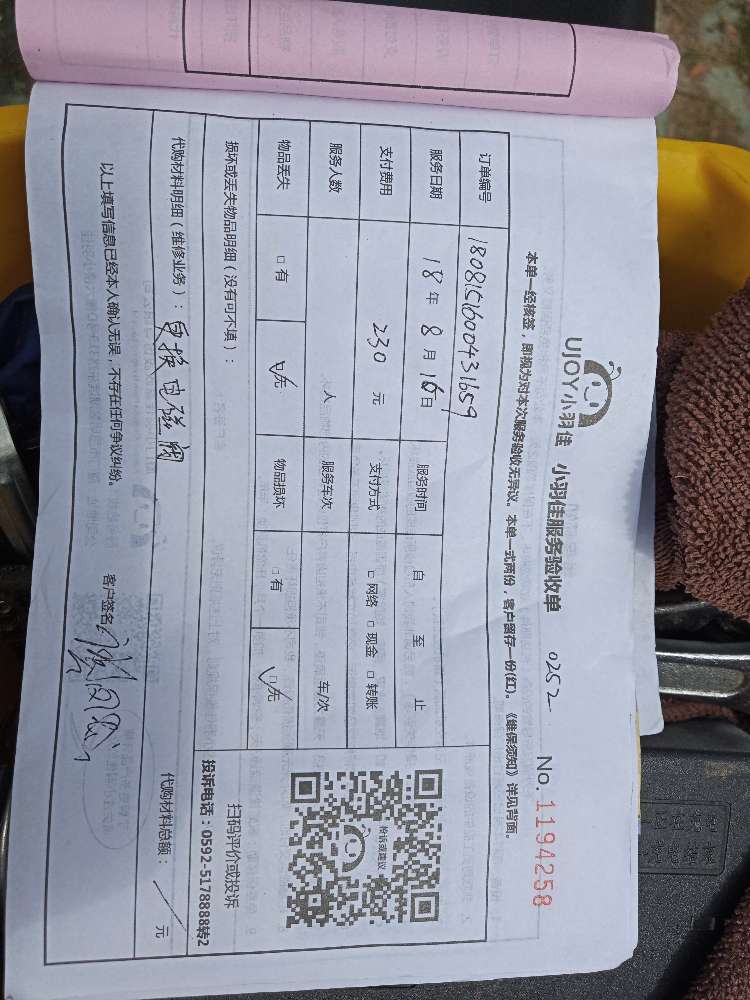 UJOY小羽佳 小羽佳服务验收单 0252 No.1194258
本单一经核签，即视为对本次服务验收无异议。本单一式两份，客户留存一份(红)。《维保须知》详见背面。
订单编号 1808151600431659
服务日期 18年8月16日 服务时间 自 至 止
支付费用 230元 支付方式 □网络 □现金 □转账
服务人数 人 服务车次 车/次
物品丢失 □有 ☑无 物品损坏 □有 ☑无
投诉或建议
扫码评价或投诉
投诉电话：0592-5178888转2
损坏或丢失物品明细（没有可不填）：
代购材料明细（维修业务）：更换电磁阀 代购材料总额： / 元
以上填写信息已经本人确认无误，不存在任何争议纠纷。 客户签名